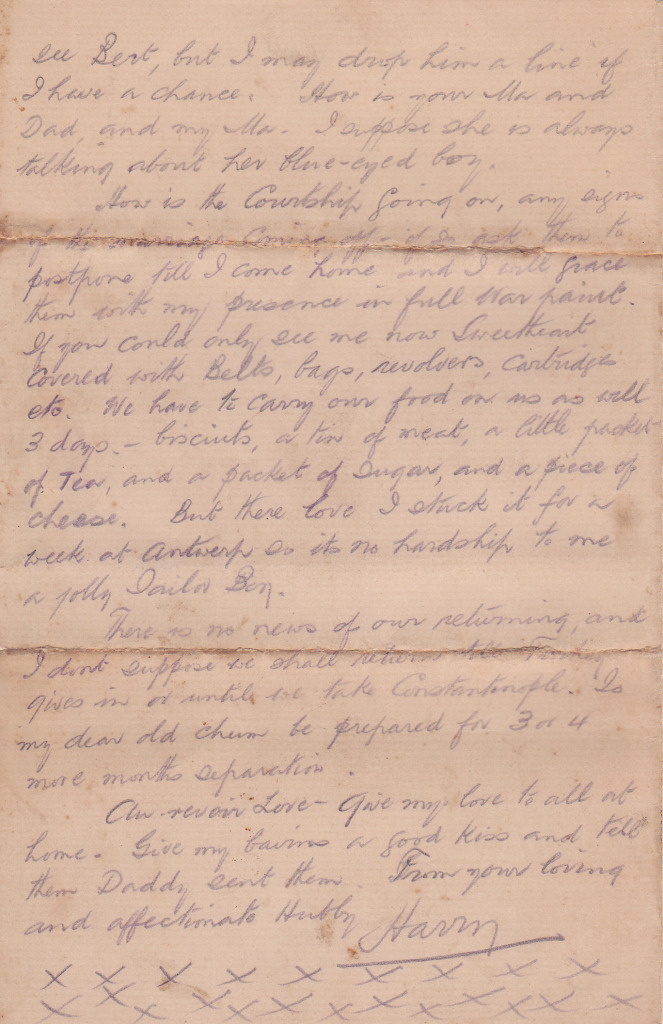 see Bert, but I may drop him a line if
I have a chance. How is your Ma and
Dad, and my Ma. I suppose she is always
talking about her blue-eyed boy.
How is the Courtship going on, any signs
of the marriage coming off - if so ask them to
postpone till I come home and I will grace
them with my presence in full War paint.
If you could only see me now Sweetheart
covered with Belts, bags, revolvers, cartridges
etc. We have to carry our food on us as well
3 days. - biscuits, a tin of meat, a little packet
of Tea, and a packet of Sugar, and a piece of
cheese. But there love I stuck it for a
week at Antwerp so its no hardship to me
a jolly Sailor Boy.
There is no news of our returning, and
I dont suppose we shall return till Turkey
gives in or until we take Constantinople. So
my dear old chum be prepared for 3 or 4
more months separation.
Au-revoir Love - Give my love to all at
home. Give my bairns a good kiss and tell
them Daddy sent them. From your loving
and affectionate Hubby Harry
x x x x x x x x x
x x x x x x x x x x x